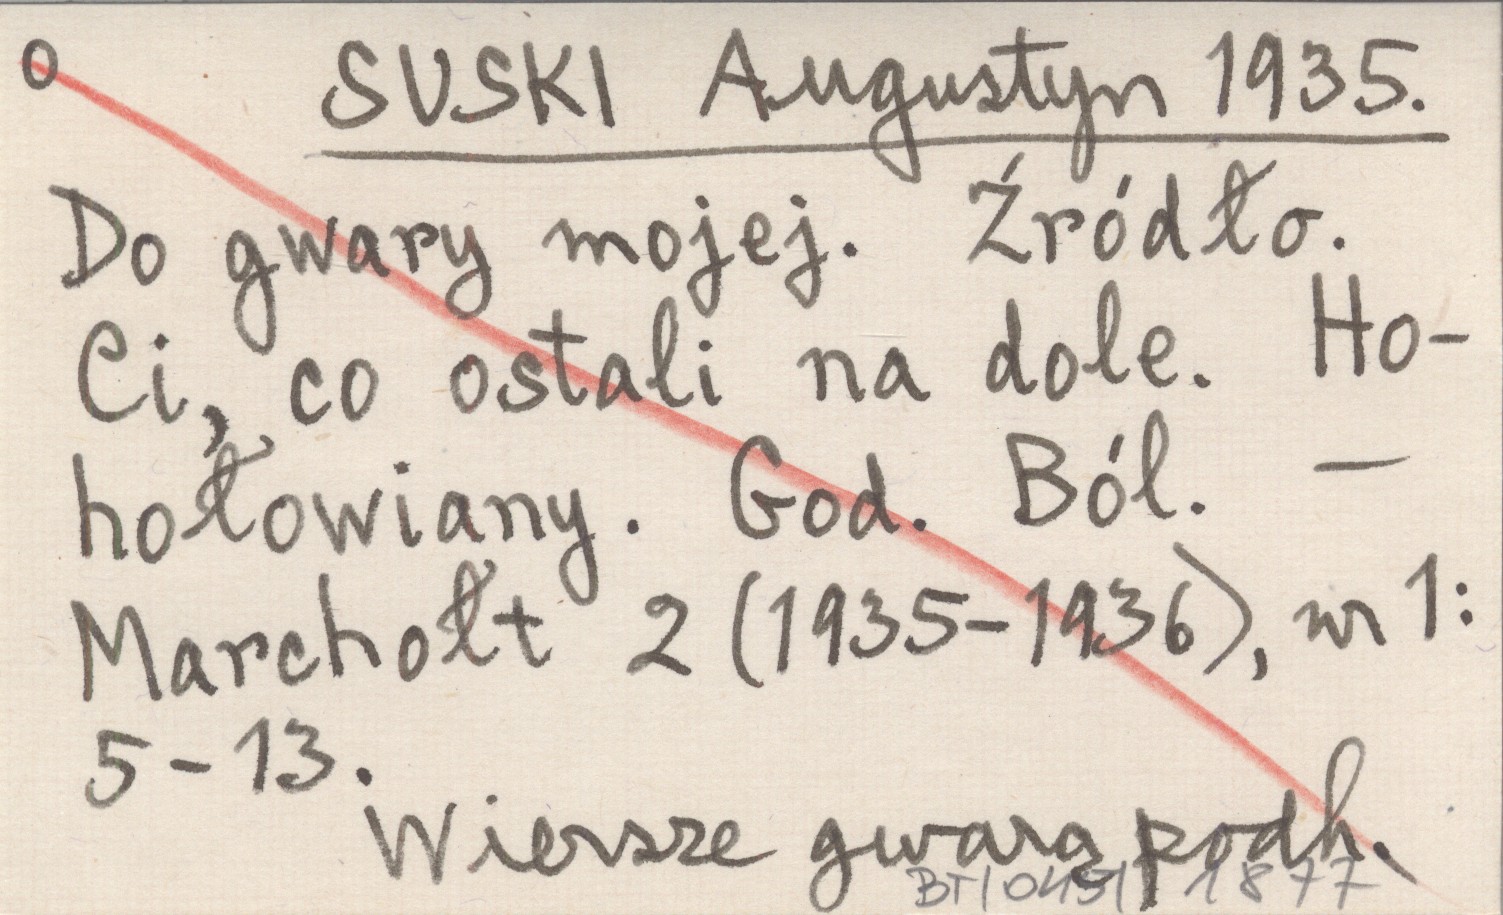 o SUSKI Augustyn 1935.
Do gwary mojej. Źródło.
Ci, co ostali na dole. Ho-
hołowiany. God. Ból. —
Marchołt 2 (1935-1936), nr 1:
5-13.
Wiersze gwarą podh.
BT/0451/ 1877